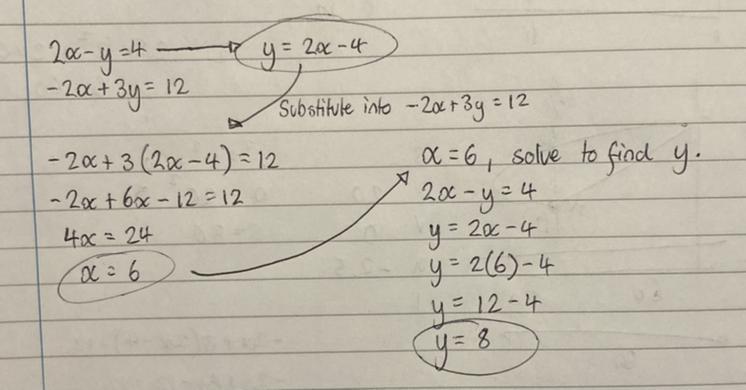 2x-y=4 → y = 2x-4
-2x+3y= 12
Substitute into -2x+3y=12
-2x+3(2x-4)=12
-2x+6x-12=12
4x = 24
x = 6
x=6, solve to find y.
2x-y=4
y=2x-4
y=2(6)-4
y=12-4
y= 8